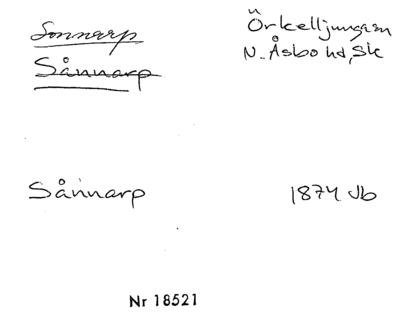 Sonnarp
Örkelljunga sn
Sånnarp
N. Åsbo hd, Sk
Sånnarp
1874 Jb
Nr 18521